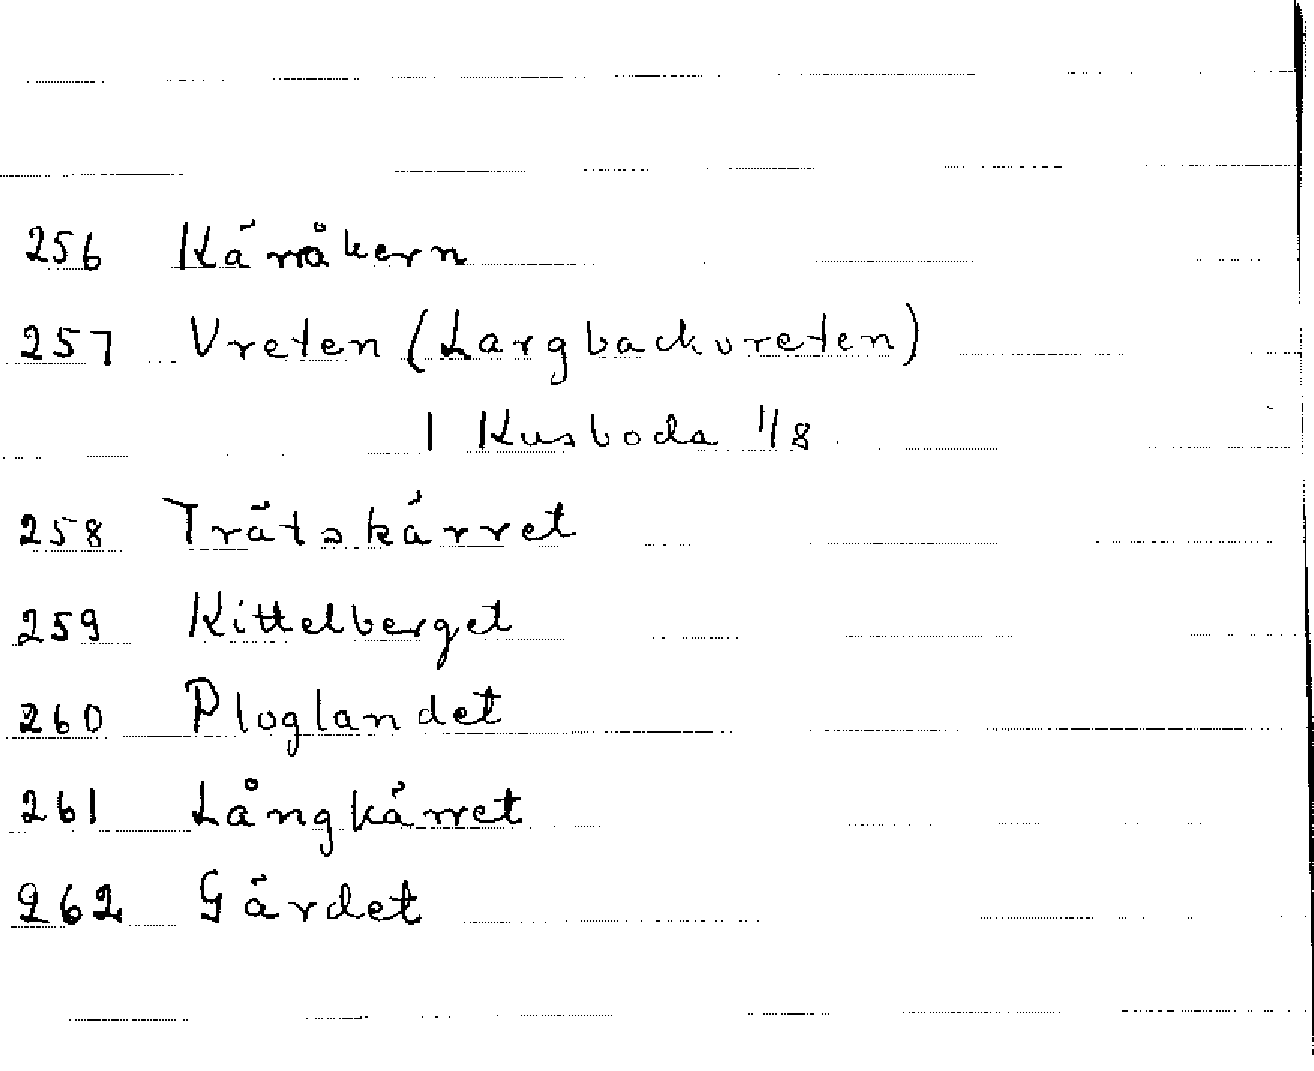 256 Kärråkern
257 Vreten (Largbackvreten)
1 Kusboda 1/8
258 Trätskärret
259 Kittelberget
260 Ploglandet
261 Långkärret
262 Gärdet